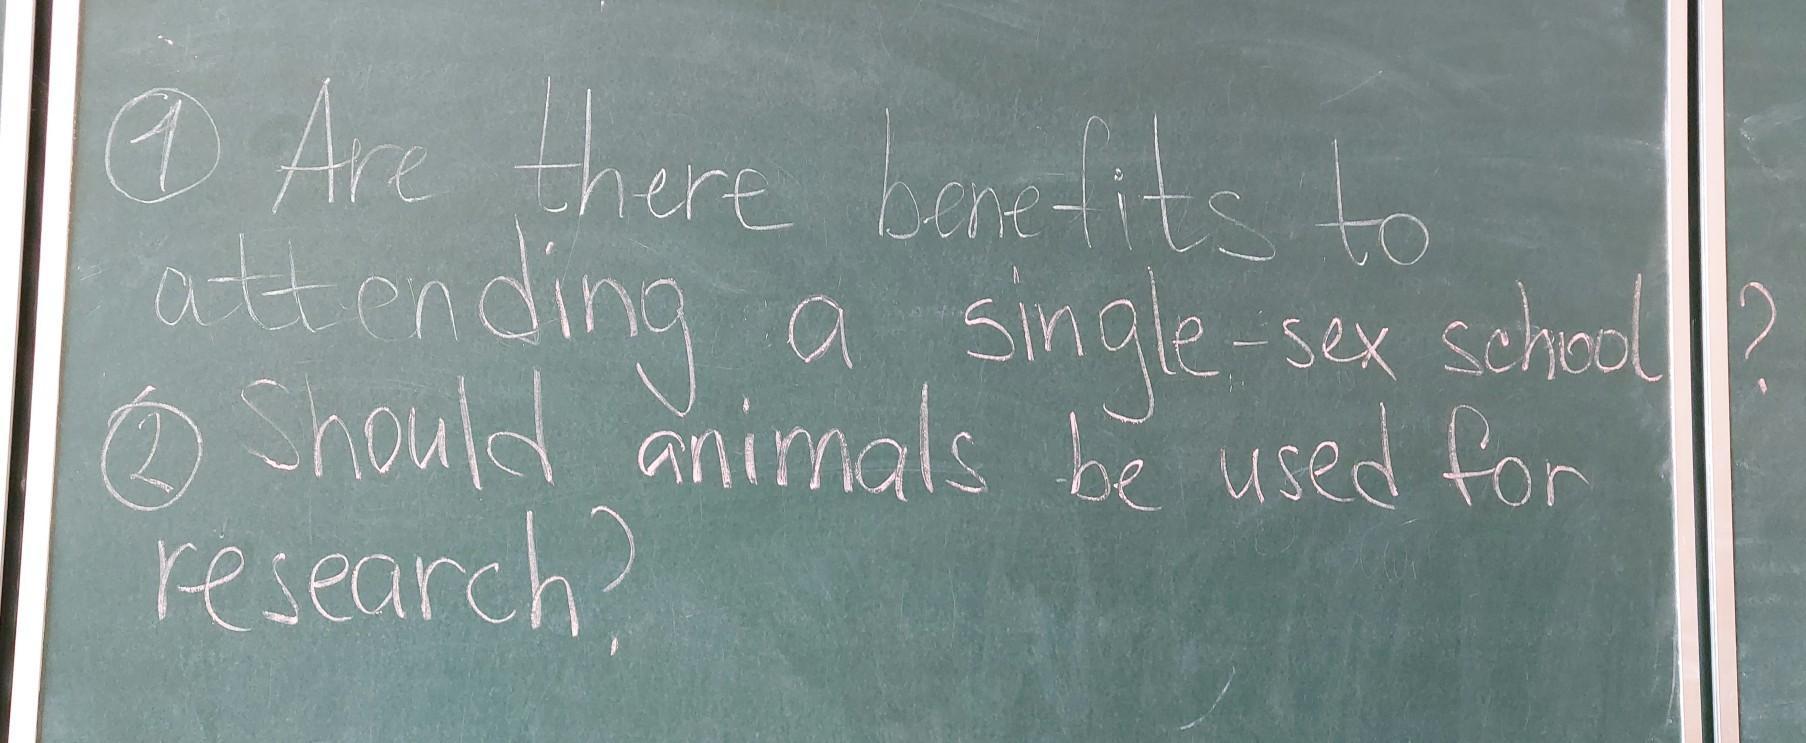 ① Are there benefits to
attending a single-sex school?
② Should animals be used for
research?